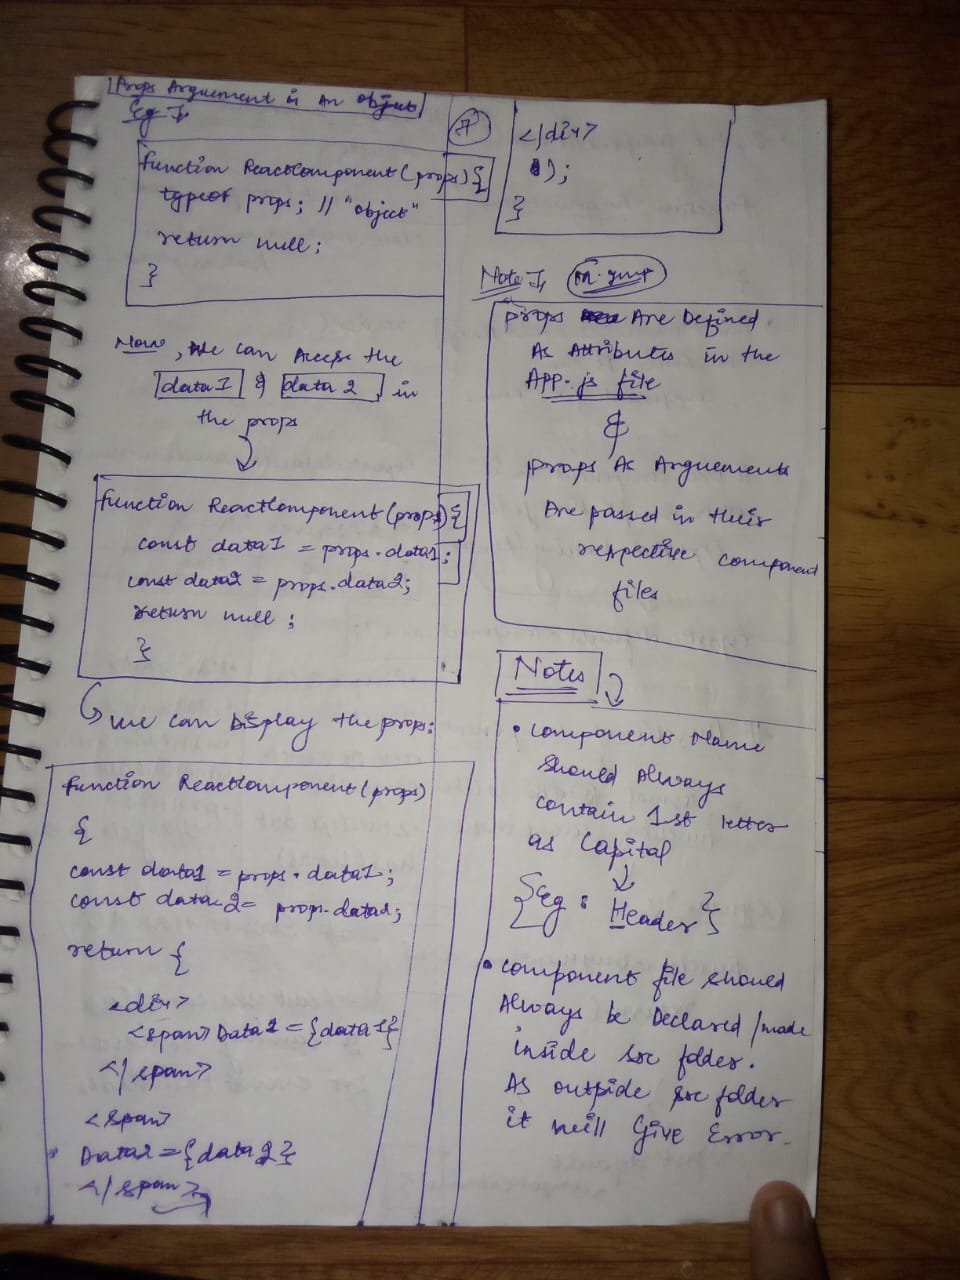 Props Arguement is An object
Eg I
function ReactComponent(props){
typeof props; // "object"
return null;
}
Now, We can Access the
data1 & data2 in
the props
function ReactComponent(props){
const data1 = props.data1;
const data2 = props.data2;
return null;
}
We can Display the props:
function ReactComponent(props)
{
const data1 = props.data1;
const data2 =
return {
<div>
<span> Data1 = {data1}
</span>
<span>
Data2 = {data2}
</span>
7
</div>
);
}
Note I,
props Are Defined
As Attributes in the
App.js file
&
props As Arguements
Are passed in their
respective component
files
Notes
• Component Name
should Always
contain 1st letter
as Capital
{Eg: Header}
• Component file should
Always be Declared/made
inside src folder.
As outside src folder
it will Give Error.